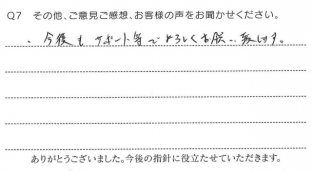 Q7 その他、ご意見ご感想、お客様の声をお聞かせください。
・今後もサポート等でよろしくお願い致します。
ありがとうございました。今後の指針に役立たせていただきます。